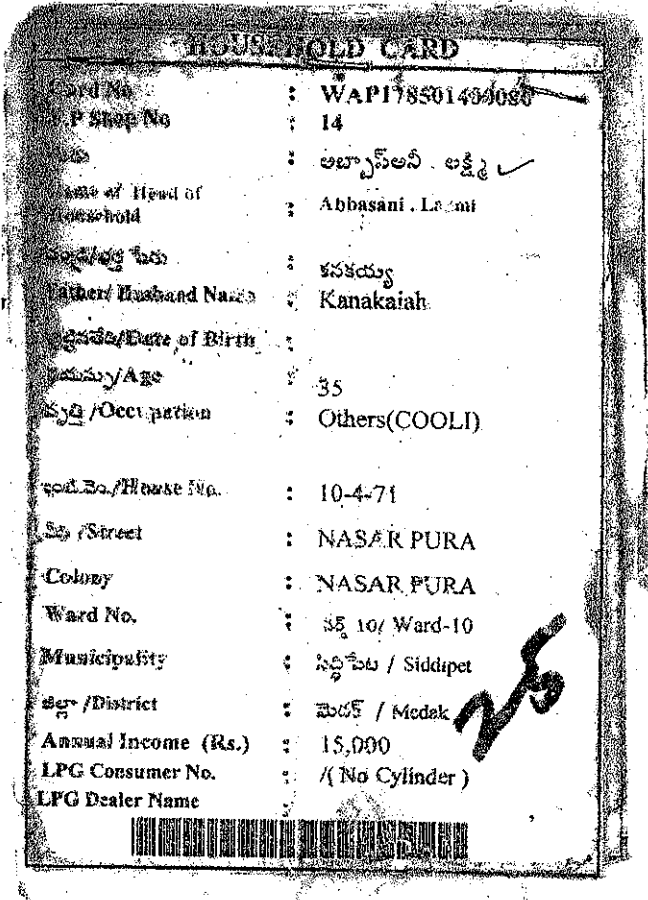 HOUSEHOLD CARD
Card No : WAP178501400080
F.P Shop No : 14
పేరు : అబ్బాస్అనీ . లక్ష్మి
Name of Head of
Household : Abbasani . Laxmi
తండ్రి/భర్త పేరు : కనకయ్య
Father/ Husband Name : Kanakaiah
పుట్టినతేది/Date of Birth :
వయస్సు/Age : 35
వృత్తి /Occupation : Others(COOLI)
ఇంటి.నెం./House No. : 10-4-71
వీధి /Street : NASAR PURA
Colony : NASAR PURA
Ward No. : వర్డ్ 10/ Ward-10
Municipality : సిద్దిపేట / Siddipet
జిల్లా /District : మెదక్ / Medak
Annual Income (Rs.) : 15,000
LPG Consumer No. : /( No Cylinder )
LPG Dealer Name :